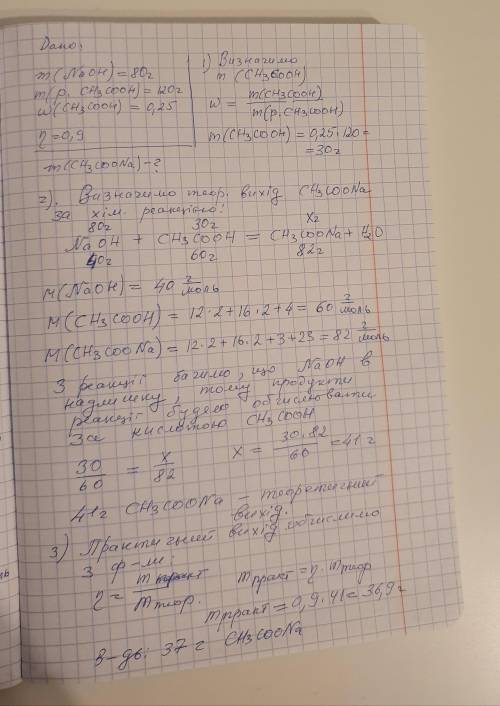 Дано:
m(NaOH) = 80г
m(р. CH3COOH) = 120г
w(CH3COOH) = 0,25
η = 0,9
m(CH3COONa) - ?
1) Визначимо
m(CH3COOH)
w = m(CH3COOH) / m(р. CH3COOH)
m(CH3COOH) = 0,25·120 =
= 30г
2). Визначимо теор. вихід CH3COONa
за хім. реакцією:
80г 30г x г
NaOH + CH3COOH = CH3COONa + H2O
40г 60г 82г
M(NaOH) = 40 г/моль
M(CH3COOH) = 12·2+16·2+4 = 60 г/моль
M(CH3COONa) = 12·2+16·2+3+23 = 82 г/моль
З реакції бачимо, що NaOH в
надлишку, тому продукти
реакції будемо обчислювати
за кислотою CH3COOH
30/60 = x/82 x = 30·82/60 = 41 г
41г CH3COONa - теоретичний
вихід.
3) Практичний вихід обчислимо
з ф-ли:
η = m практ / m теор. m практ = η · m теор
m практ = 0,9·41 = 36,9 г
В-дь: 37 г CH3COONa